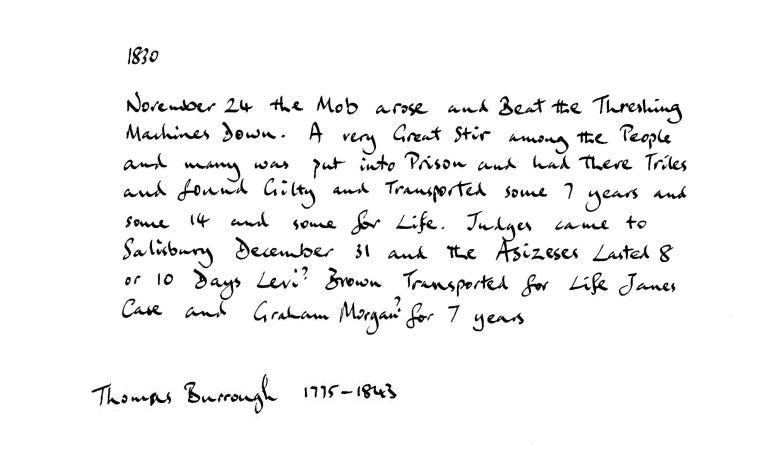 1830
November 24 the Mob arose and Beat the Threshing
Machines Down. A very Great Stir among the People
and many was put into Prison and had there Triles
and found Gilty and Transported some 7 years and
some 14 and some for Life. Judges came to
Salisbury December 31 and the Asizeses Lasted 8
or 10 Days Levi? Brown Transported for Life James
Case and Graham Morgan? for 7 years
Thomas Burrough 1775-1843